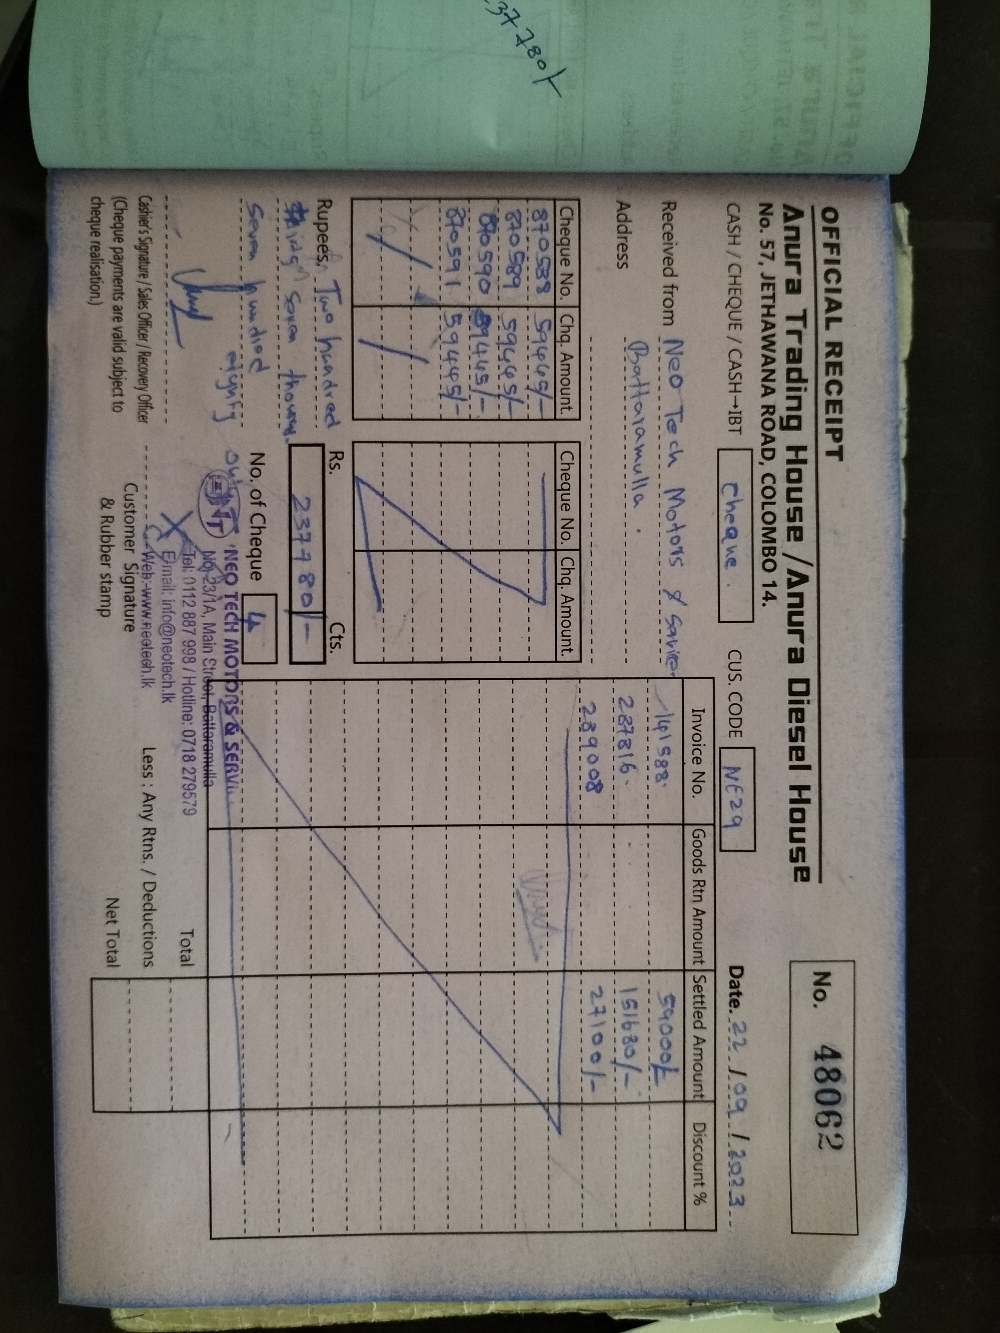 37780/
OFFICIAL RECEIPT
Anura Trading House / Anura Diesel House
No. 57, JETHAWANA ROAD, COLOMBO 14.
No. 48062
CASH / CHEQUE / CASH→IBT Cheque. CUS. CODE NE29 Date. 22 / 09 / 2023
Received from Neo Tech Motors &
Address Battaramulla.
Cheque No. Chq. Amount.
870588 59445/-
870589 59445/-
870590 59445/-
870591 59445/-
Cheque No. Chq. Amount.
Invoice No. Goods Rtn Amount Settled Amount Discount %
141588. 59000/-
287816. 151680/-
289008 27100/-
Rupees, Two hundred
seven thousand
seven hundred
eighty only
Rs. 237780/- Cts.
No. of Cheque 4
NEO TECH MOTORS & SERVI
No. 23/1A, Main Street, Battaramulla
Tel: 0112 887 998 / Hotline: 0718 279579
E/mail: info@neotech.lk
Web:-www.neotech.lk
Cashier's Signature / Sales Officer / Recovery Officer
(Cheque payments are valid subject to
cheque realisation.)
Customer Signature
& Rubber stamp
Total
Less : Any Rtns. / Deductions
Net Total